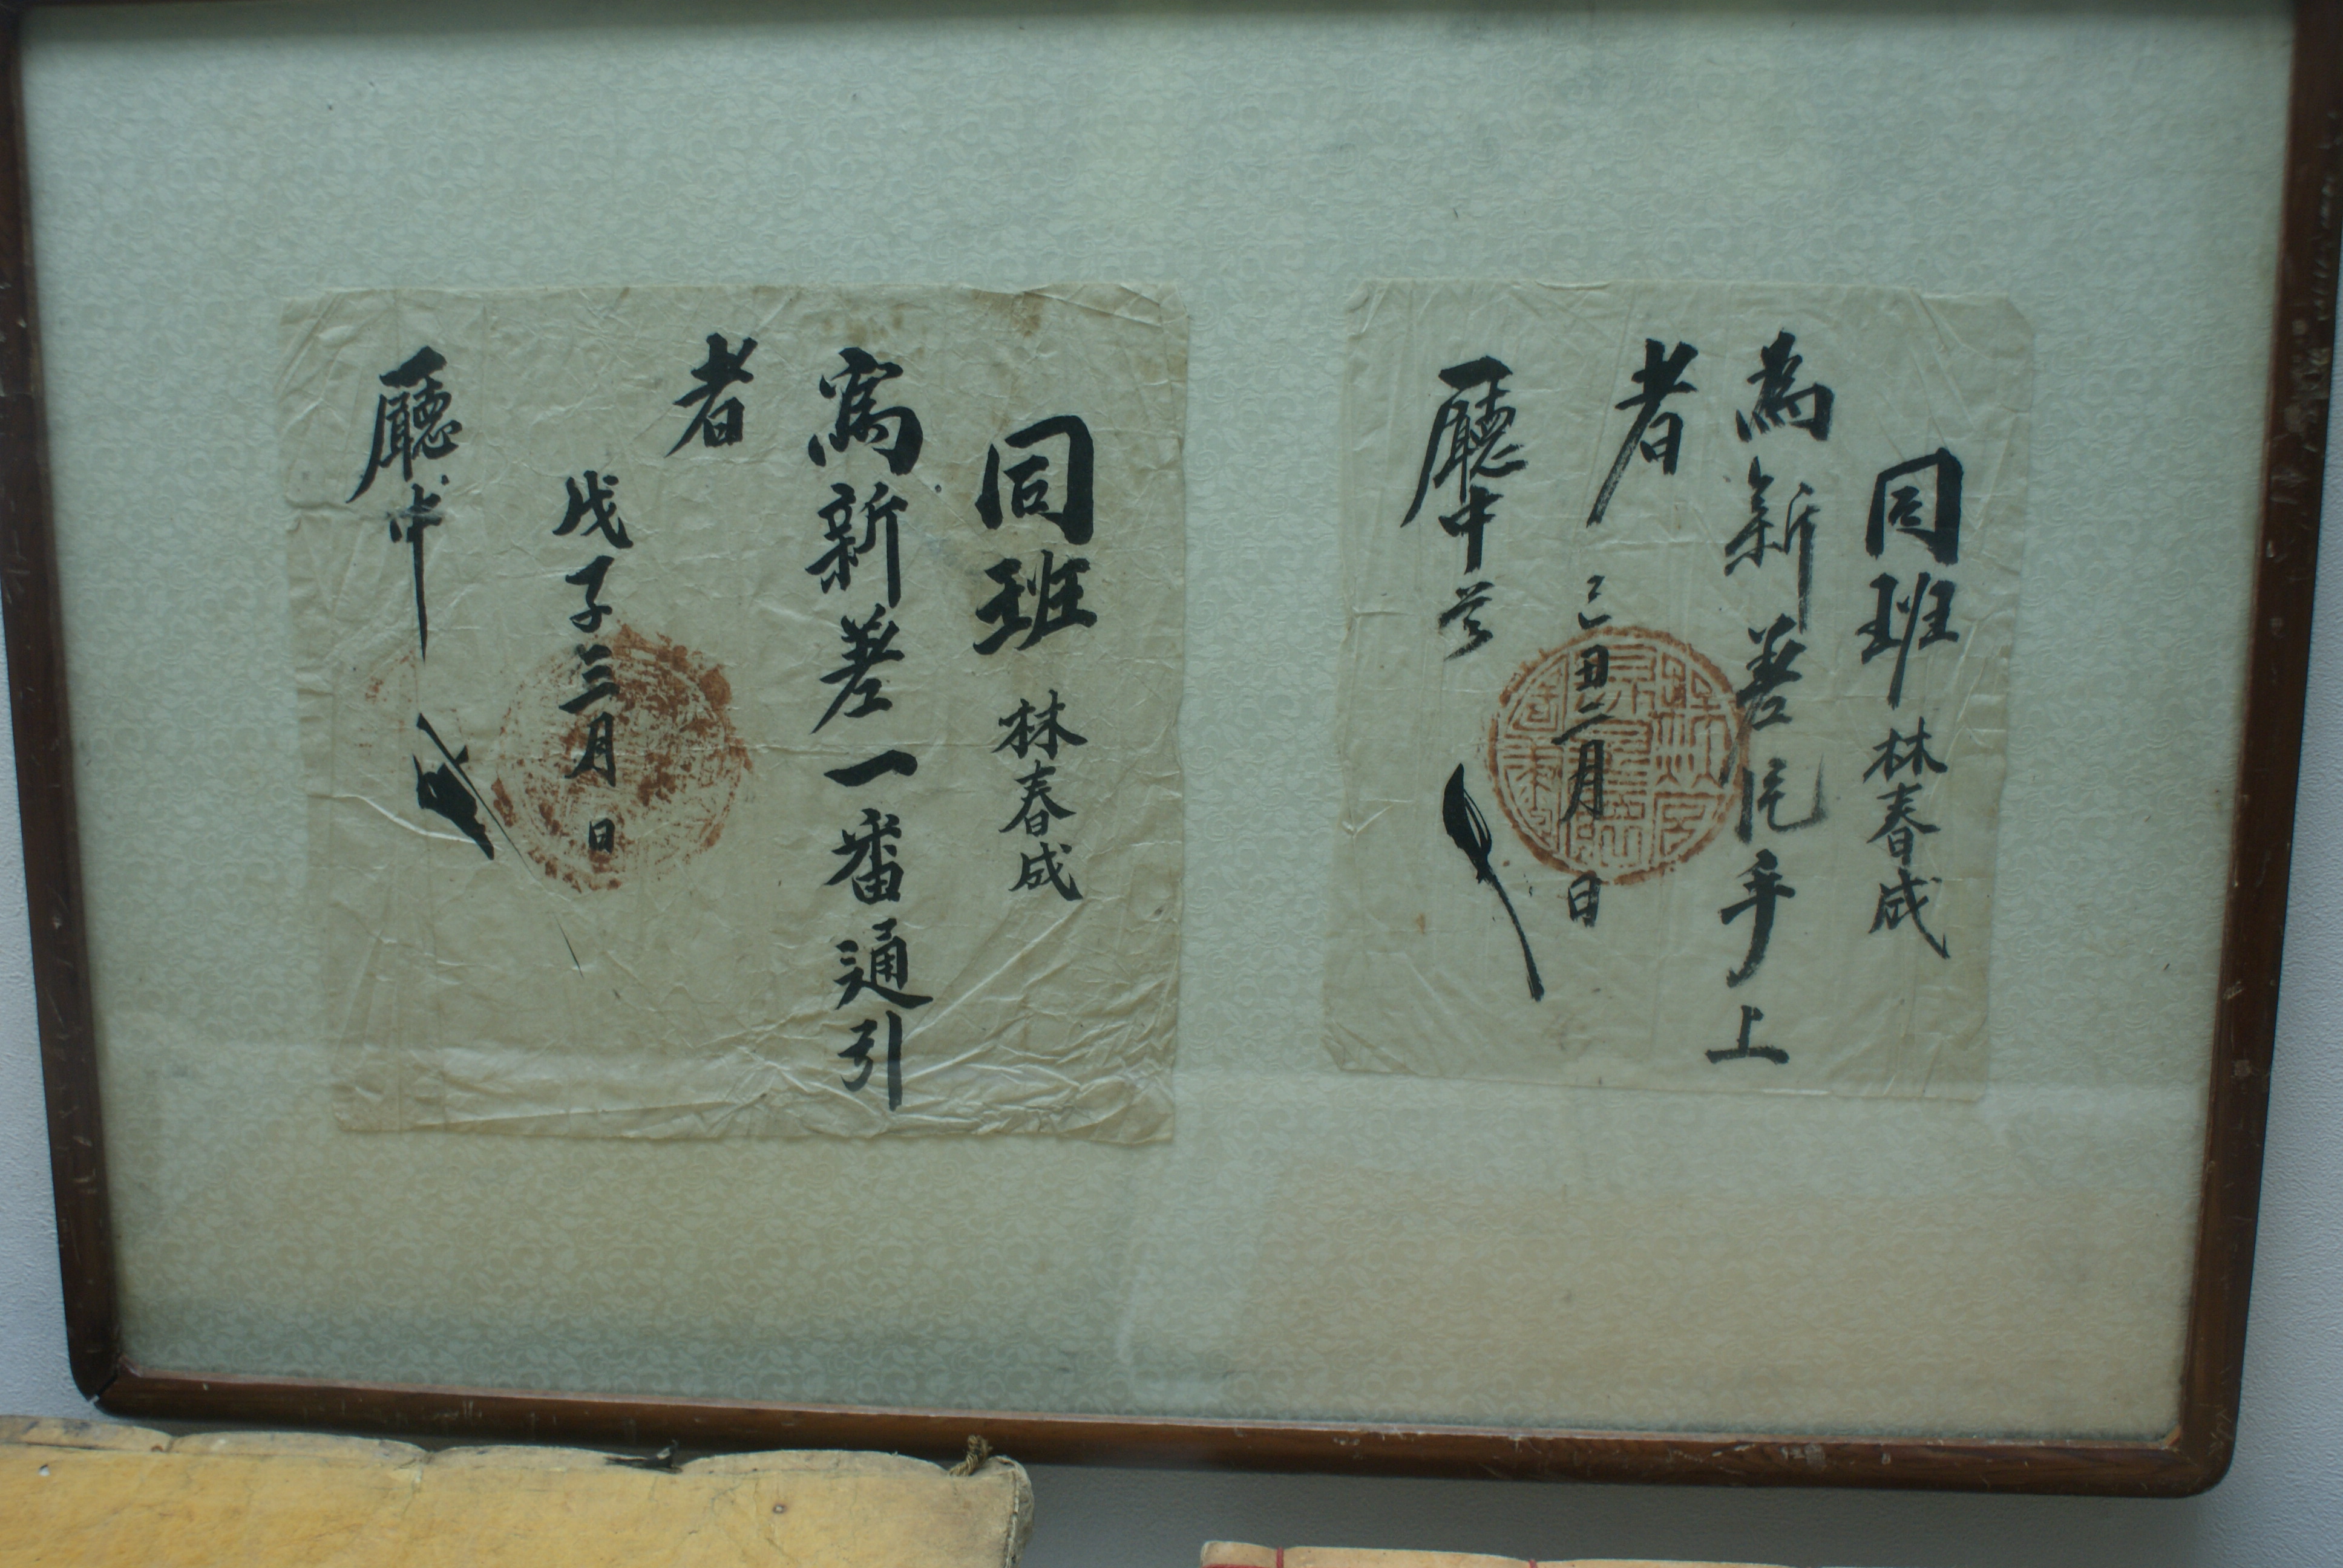 同班 林春成
為新差 手上
者
己丑二月 日
廳中
同班 林春成
爲新差一番通引
者
戊子三月 日
廳中